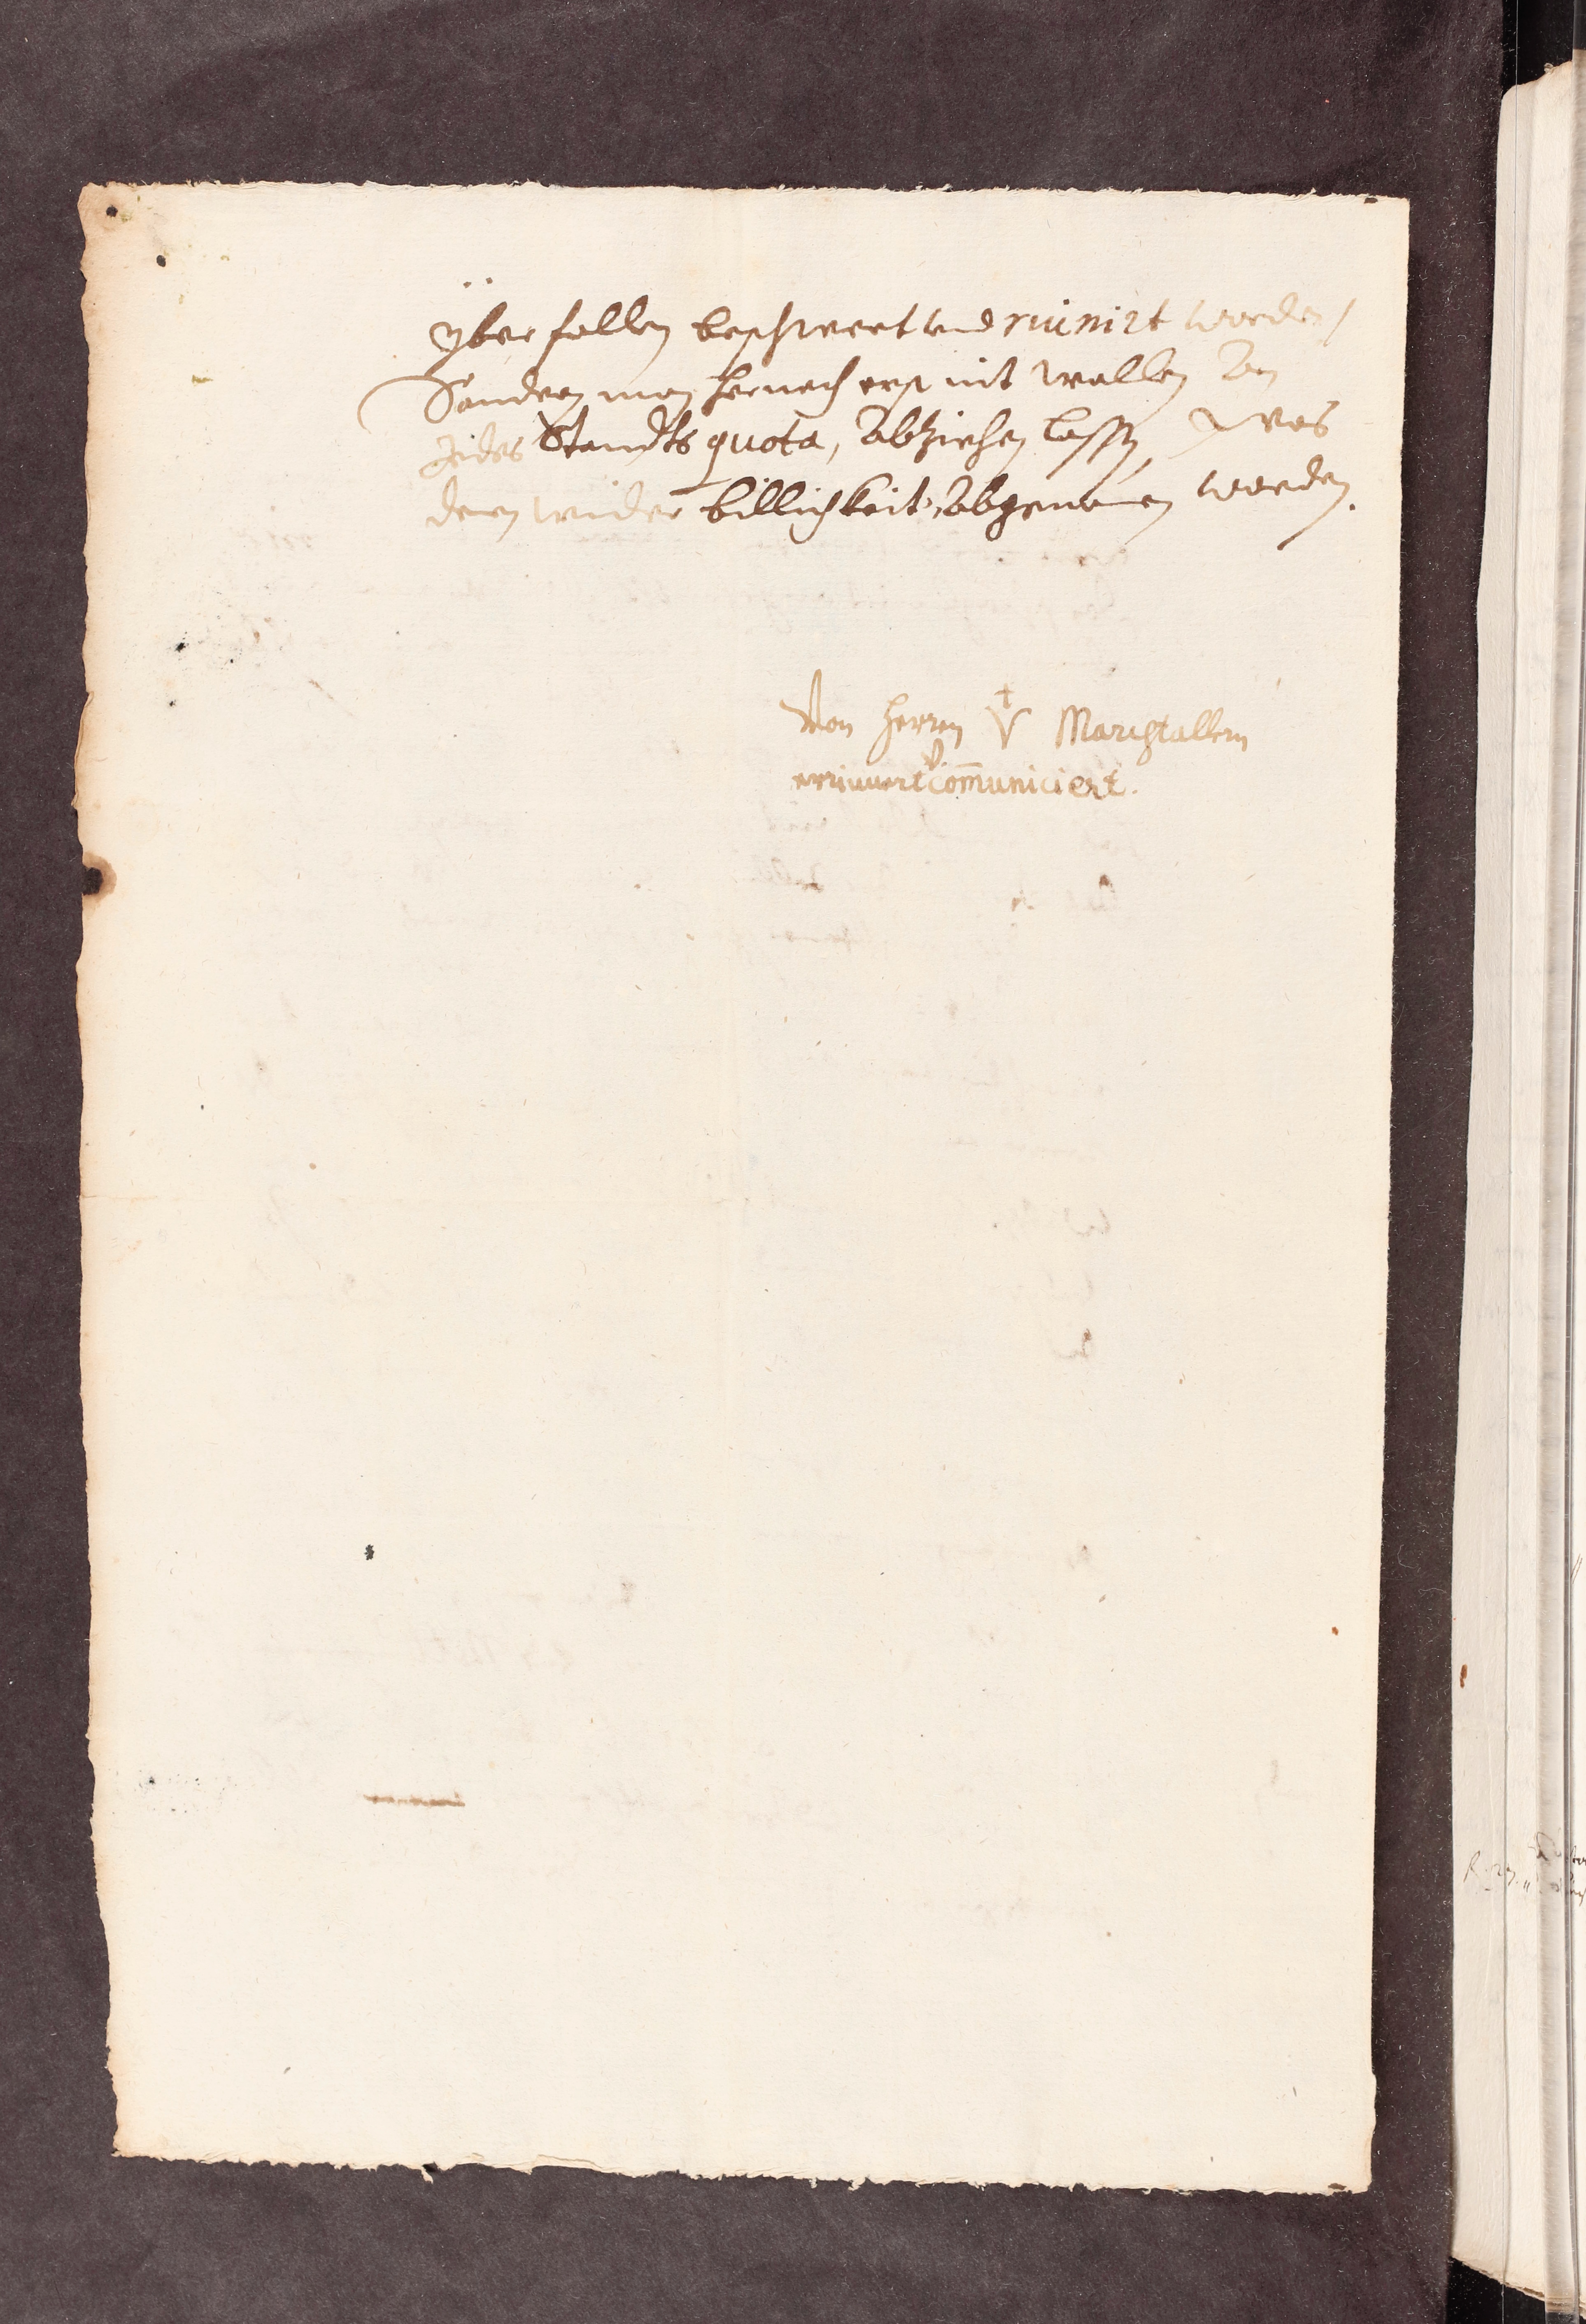 ÿberfallen beschwert vnd ruinirt worden /
Sondern man hernach erst nit wollen an
Jedes Standts quota, abziehen lassen, was
denen wider billichkeit abgenomen worden.
Von herren V Marchstallern
communiciert.